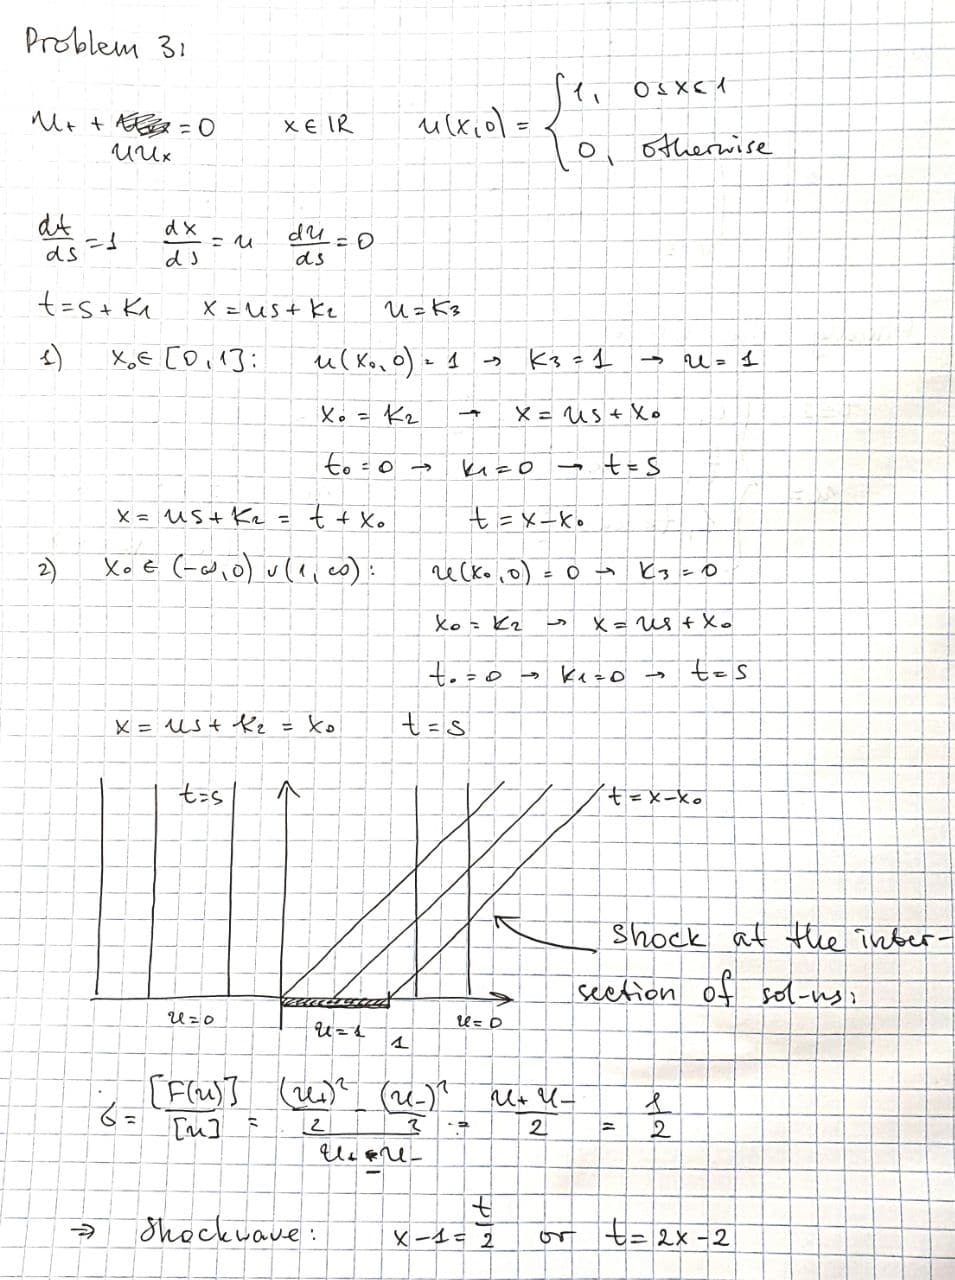 Problem 3:
u_t + uu_x = 0   x ∈ ℝ   u(x,0) = { 1, 0 ≤ x < 1
0, otherwise
dt/ds = 1   dx/ds = u   du/ds = 0
t = s + k₁   x = us + k₂   u = k₃
1) x₀ ∈ [0,1]: u(x₀,0) = 1 → k₃ = 1 → u = 1
x₀ = k₂ → x = us + x₀
t₀ = 0 → k₁ = 0 → t = s
x = us + k₂ = t + x₀   t = x - x₀
2) x₀ ∈ (-∞,0) ∪ (1,∞): u(x₀,0) = 0 → k₃ = 0
x₀ = k₂ → x = us + x₀
t₀ = 0 → k₁ = 0 → t = s
x = us + k₂ = x₀   t = s
t=s   t = x - x₀
Shock at the inter-
section of sol-ns:
u=0   u=1   1   u=0
σ̇ = [F(u)]/[u] = ((u₊)²/2 - (u₋)²/2)/(u₊ - u₋) = (u₊ u₋)/2 = 1/2
⇒ Shockwave: x - 1 = t/2 or t = 2x - 2